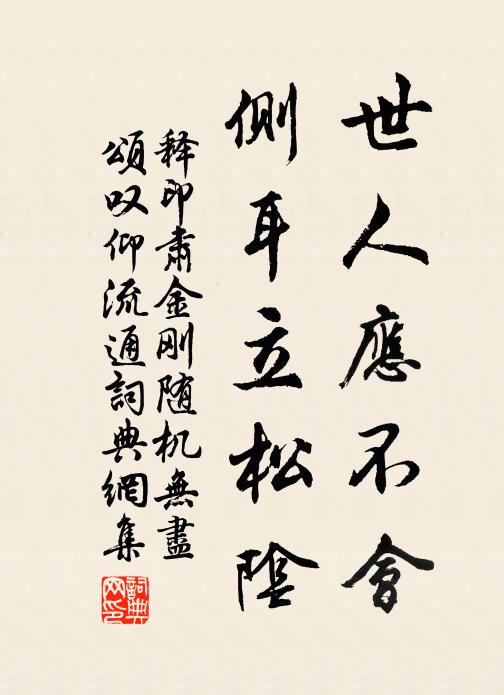 世人應不會
側耳立松陰
释印肃金刚随机無盡
頌叹仰流通詞典網集
詞典
网